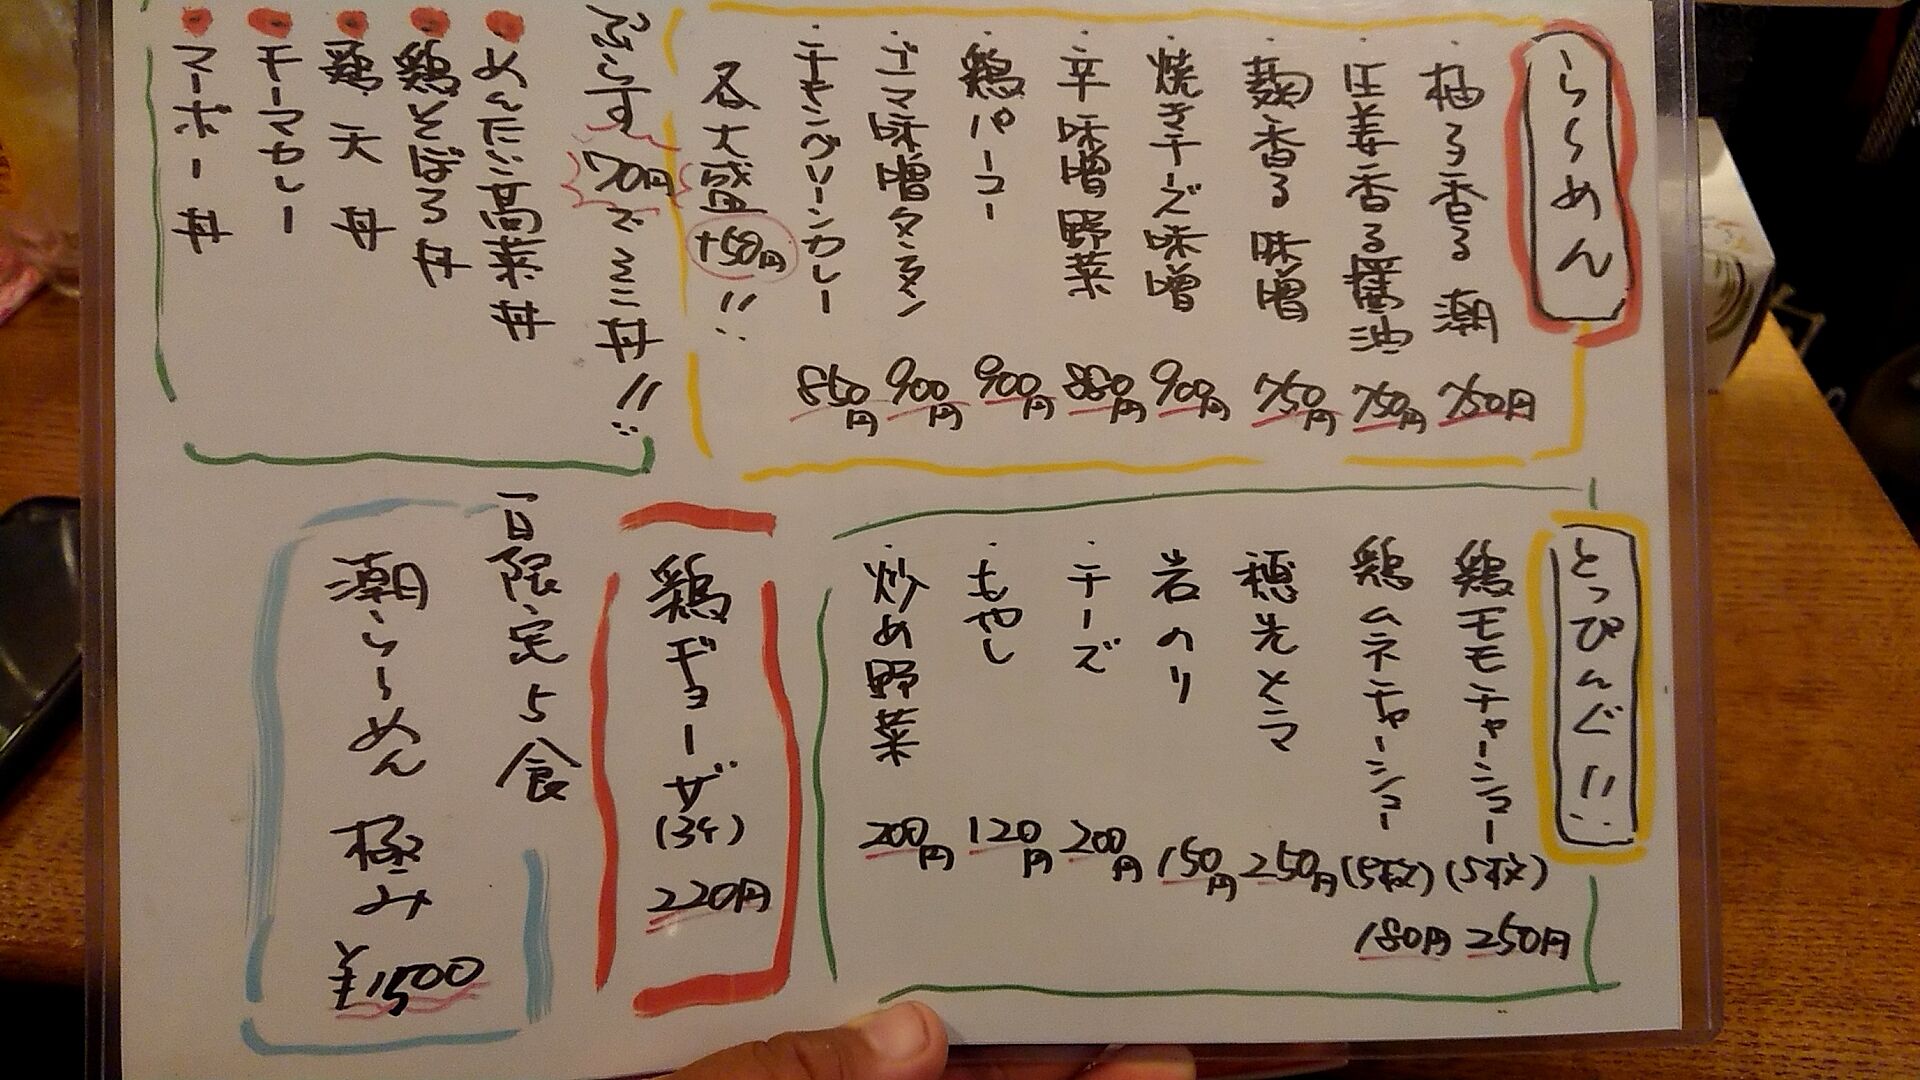 らーめん
・柚子香る 潮 750円
・圧姜香る醤油 750円
・麹香る味噌 750円
・焼きチーズ味噌 900円
・辛味噌野菜 880円
・鶏パーコー 900円
・ゴマ味噌タンタン 900円
・チキングリーンカレー 850円
各大盛+50円!!
ぷらす70円でミニ丼!!
めんたい高菜丼
鶏そぼろ丼
鶏天丼
キーマカレー
マーボー丼
とっぴんぐ!!
鶏モモチャーシュー(5枚) 250円
鶏ムネチャーシュー(5枚) 180円
穂先メンマ 250円
岩のり 150円
・チーズ 200円
・もやし 120円
・炒め野菜 200円
鶏ギョーザ(3ケ) 220円
一日限定5食
潮らーめん 極み ¥1500